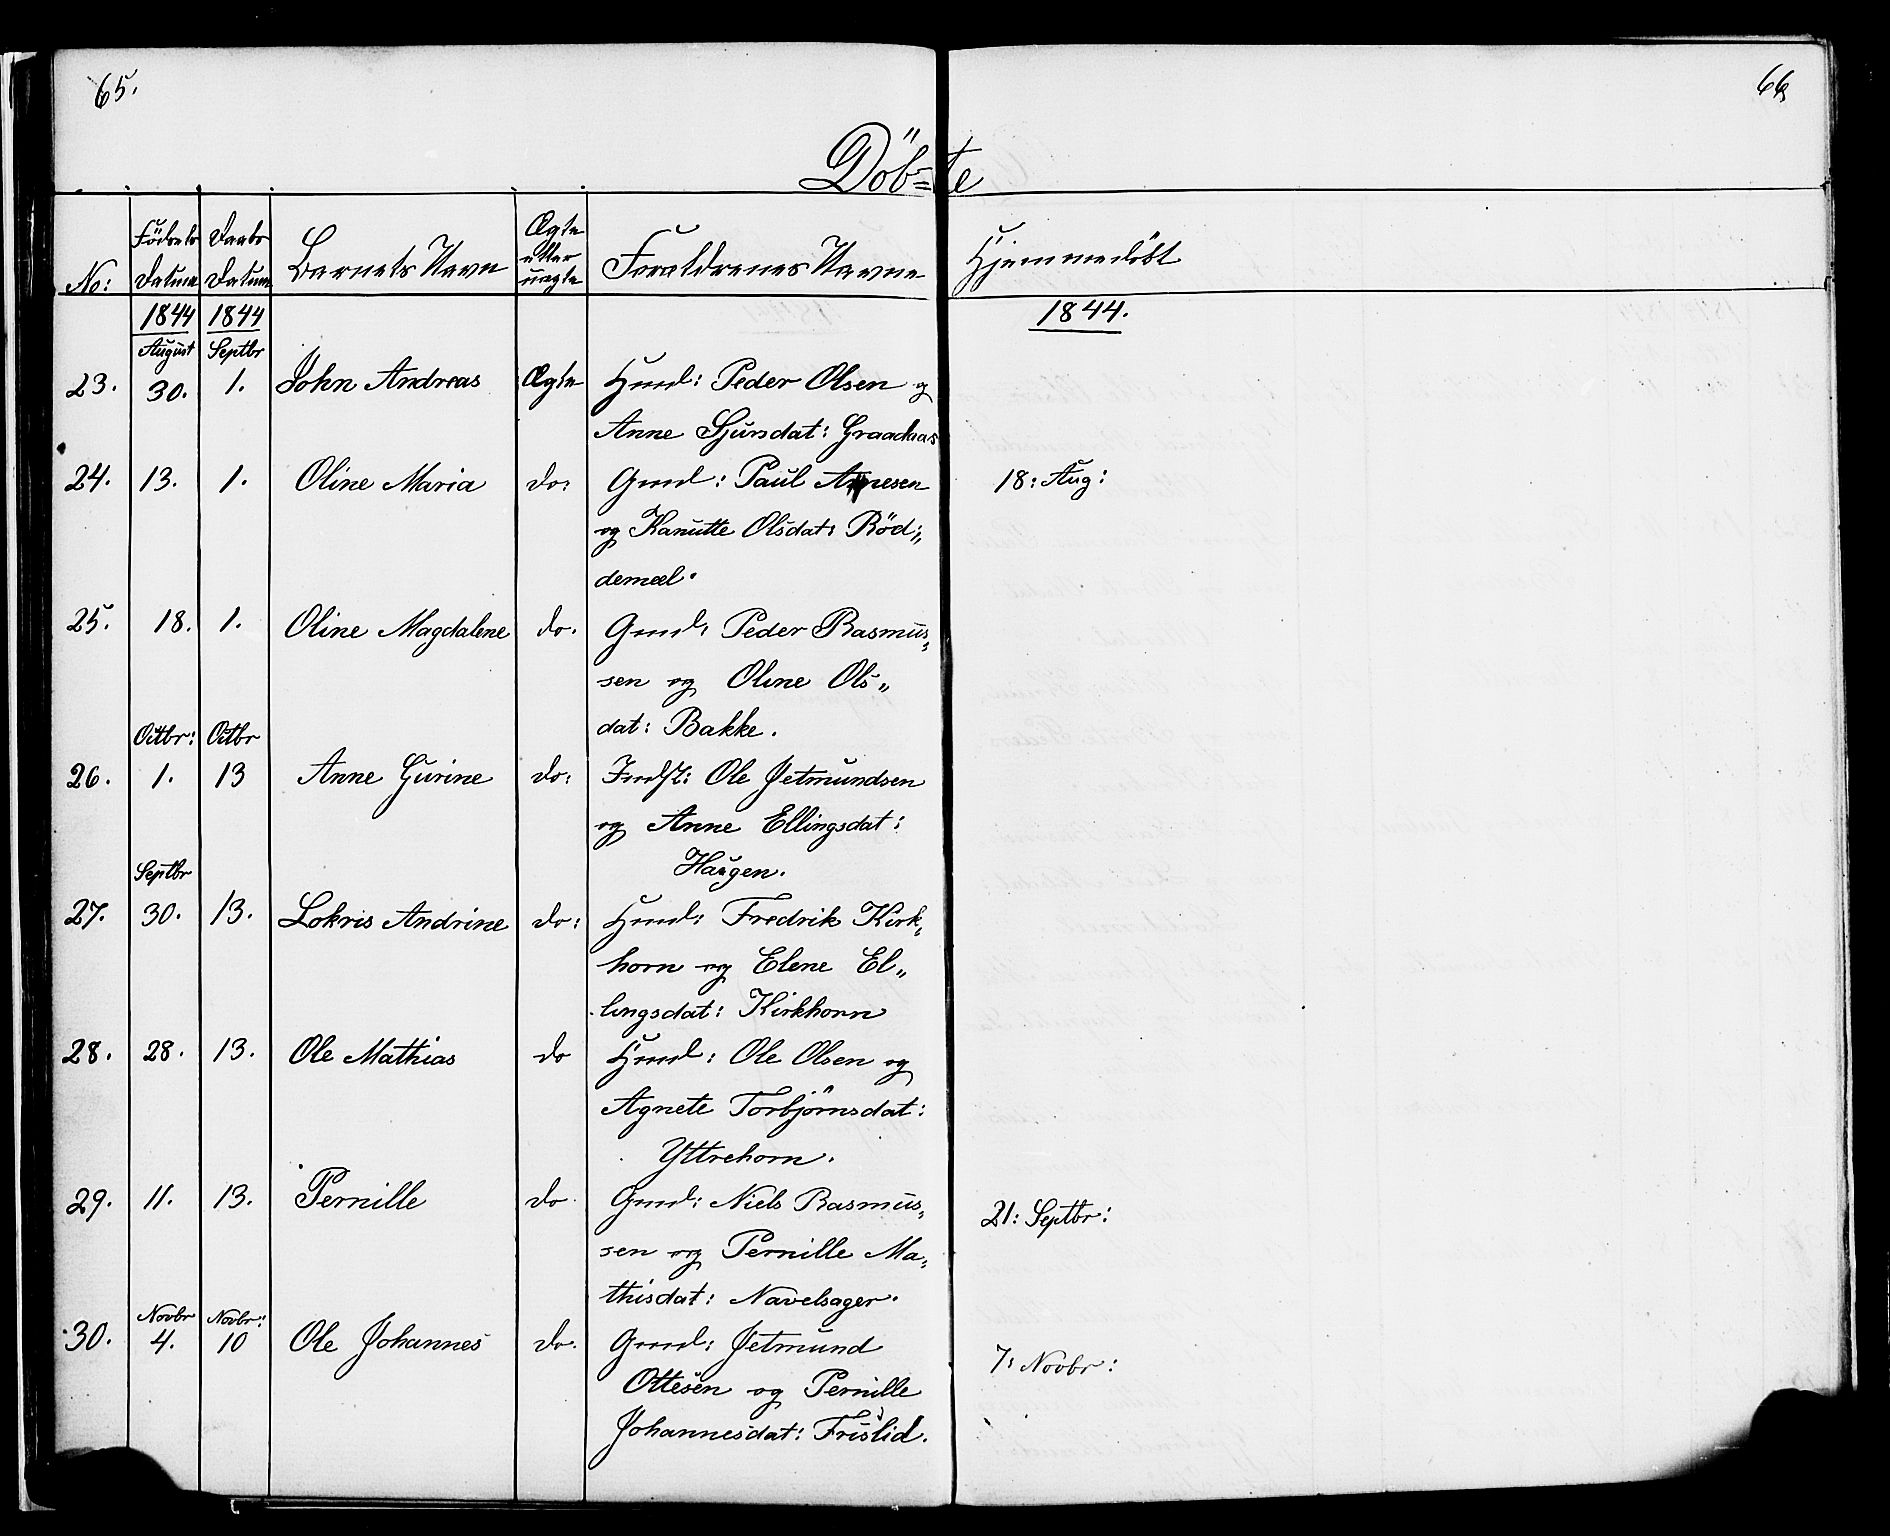 65.
66
Döb=te
No: Födsels Datum Daabs Datum Barnets Navn Ægte eller uægte Forældrenes Navne Hjemmedöbt
1844 1844 1844.
August Septbr
23. 30. 1. John Andreas Ægte Hmd: Peder Olsen og
Anne Sjursdat: Graadaas
24. 13. 1. Oline Maria do: Gmd: Paul Arnesen 18: Aug:
og Kanutte Olsdat: Röd„
demæl.
25. 18. 1. Oline Magdalene do. Gmd: Peder Rasmus„
sen og Oline Ols„
dat: Bakke.
Octbr: Octbr
26. 1. 13 Anne Gurine do: Indst: Ole Jetmundsen
og Anne Ellingsdat:
Haugen.
Septbr
27. 30. 13. Lokris Andrine do: Hmd: Fredrik Kirk„
horn og Elene El„
lingsdat: Kirkhorn
28. 28. 13. Ole Mathias do Hmd: Ole Olsen og
Agnete Torbjörnsdat:
Yttrehorn.
29. 11. 13. Pernille do Gmd: Niels Rasmus„ 21: Septbr:
sen og Pernille Ma„
thisdat: Navelsager.
Novbr Novbr:
30. 4. 10 Ole Johannes do. Gmd: Jetmund 7: Novbr:
Ottesen og Pernille
Johannesdat: Frislid.